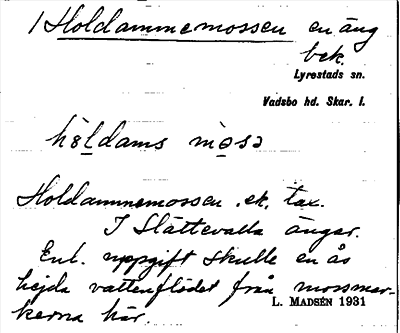 1 Holdammemossen en äng
bek.
Lyrestads sn.
Vadsbo hd. Skar. l.
höldams mosə
Holdammemossen .ek. tax.
I Slättevalla ängar.
Enl. uppgift skulle en ås
hejda vattenflödet från mossmar-
kerna här.
L. MADSÉN 1931